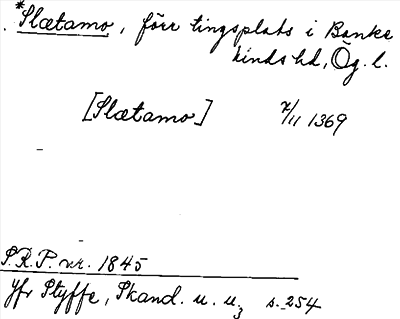 *Slætamo, förr tingsplats i Banke
kinds hd, Ög. l.
[Slætamo] 7/11 1369
S.R.P. nr. 1845
Jfr Styffe, Skand. u. u3 s. 254